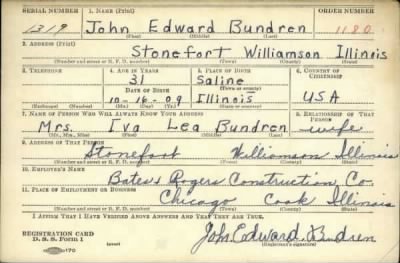 SERIAL NUMBER 1. NAME (Print) ORDER NUMBER
1319 John Edward Bundren 1180
(First) (Middle) (Last)
2. ADDRESS (Print)
Stonefort Williamson Illinois
(Number and street or R. F. D. number) (Town) (County) (State)
3. TELEPHONE 4. AGE IN YEARS 5. PLACE OF BIRTH 6. COUNTRY OF CITIZENSHIP
31 Saline
DATE OF BIRTH (Town or county)
10-16-09 Illinois USA
(Exchange) (Number) (Mo.) (Day) (Yr.) (State or country)
7. NAME OF PERSON WHO WILL ALWAYS KNOW YOUR ADDRESS 8. RELATIONSHIP OF THAT PERSON
Mrs. Iva Lea Bundren wife
(Mr., Mrs., Miss) (First) (Middle) (Last)
9. ADDRESS OF THAT PERSON
Stonefort Williamson Illinois
(Number and street or R. F. D. number) (Town) (County) (State)
10. EMPLOYER'S NAME
Bates & Rogers Construction Co.
11. PLACE OF EMPLOYMENT OR BUSINESS
Chicago Cook Illinois
(Number and street or R. F. D. number) (Town) (County) (State)
I AFFIRM THAT I HAVE VERIFIED ABOVE ANSWERS AND THAT THEY ARE TRUE.
REGISTRATION CARD
D. S. S. Form 1 John Edward Bundren
(Registrant's signature)